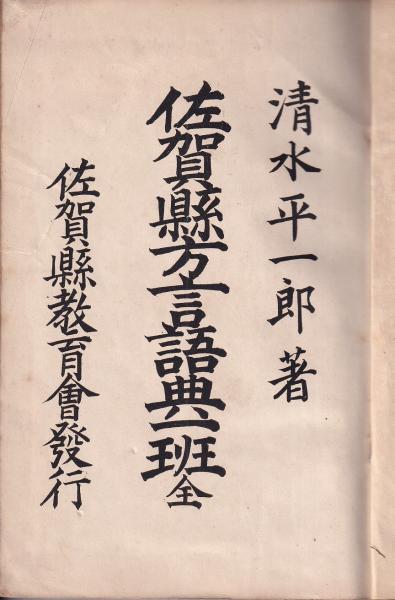 清水平一郎著
佐賀縣方言語典一班全
佐賀縣教育會發行